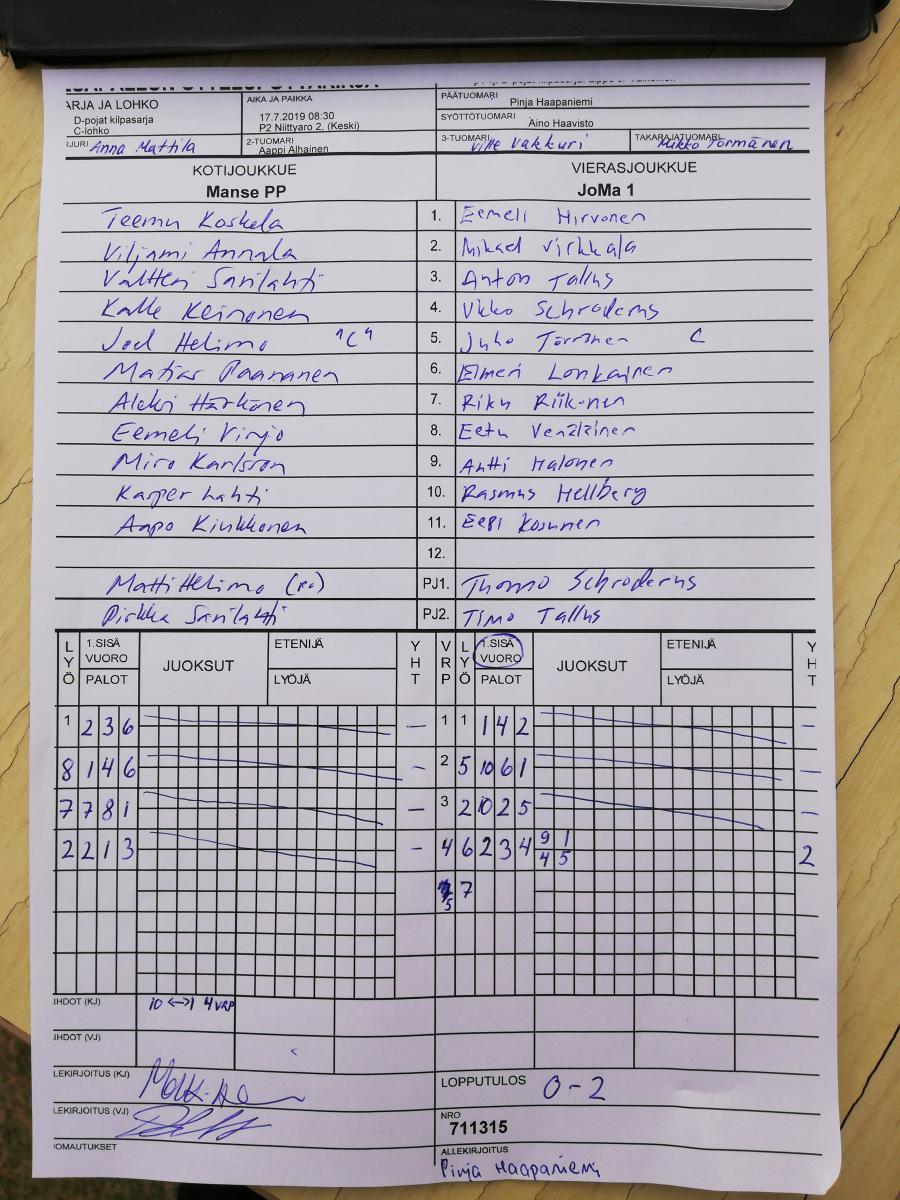 ARJA JA LOHKO
D-pojat kilpasarja
C-lohko
AIKA JA PAIKKA
17.7.2019 08:30
P2 Niittyaro 2, (Keski)
PÄÄTUOMARI Pinja Haapaniemi
SYÖTTÖTUOMARI Aino Haavisto
JURI Anna Mattila
2-TUOMARI Aappi Alhainen
3-TUOMARI Ville Vakkuri
TAKARAJATUOMARI Mikko Törmänen
KOTIJOUKKUE VIERASJOUKKUE
Manse PP JoMa 1
Teemu Koskela 1. Eemeli Hirvonen
Viljami Annala 2. Mikael Virkkala
Valtteri Sarilahti 3. Anton Tallus
Kalle Keinonen 4. Ukko Schroderus
Joel Helimo "C" 5. Juho Törrönen C
Matias Paananen 6. Elmeri Lonkainen
Aleksi Härkönen 7. Riku Riikonen
Eemeli Virjo 8. Eetu Venäläinen
Miro Karlsson 9. Antti Halonen
Kasper Lahti 10. Rasmus Hellberg
Aapo Kinkkonen 11. Eepi Kosunen
12.
Matti Helimo PJ1. Thomo Schroderus
Pirkka Sarilahti PJ2. Timo Tallus
LYÖ 1.SISÄ VUORO PALOT JUOKSUT ETENIJÄ LYÖJÄ YHT VRP LYÖ 1.SISÄ VUORO PALOT JUOKSUT ETENIJÄ LYÖJÄ YHT
1 2 3 6 — 1 1 1 4 2 —
8 1 4 6 — 2 5 10 6 1 —
7 7 8 1 — 3 2 10 2 5 —
2 2 1 3 — 4 6 2 3 4 9 1 2
4 5
5 7
IHDOT (KJ) 10 <-> 1 4 VRP
IHDOT (VJ)
LEKIRJOITUS (KJ)
LOPPUTULOS 0-2
LEKIRJOITUS (VJ)
NRO
711315
OMAUTUKSET
ALLEKIRJOITUS
Pinja Haapaniemi